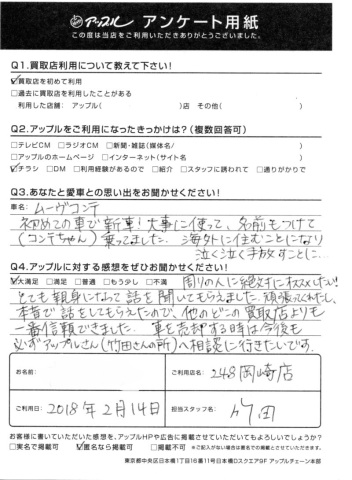 アップル アンケート用紙
この度は当店をご利用いただきありがとうございました。
Q1.買取店利用について教えて下さい!
☑買取店を初めて利用
□過去に買取店を利用したことがある
利用した店舗: アップル( )店 その他( )
Q2.アップルをご利用になったきっかけは?(複数回答可)
□テレビCM □ラジオCM □新聞・雑誌(媒体名/ )
□アップルのホームページ □インターネット(サイト名 )
☑チラシ □DM □利用経験があるので □紹介 □スタッフに誘われて □通りがかりで
Q3.あなたと愛車との思い出をお聞かせください!
車名: ムーヴコンテ
初めての車で新車!大事に使って、名前もつけて
(コンテちゃん)乗ってました。海外に住むことになり
泣く泣く手放すことに…
Q4.アップルに対する感想をぜひお聞かせください!
☑大満足 □満足 □普通 □もう少し □不満 周りの人に絶対にオススメしたい!
とても親身になって話を聞いてもらえました。頑張ってくれたし、
本音で話をしてもらえたので、他のどこの買取店よりも
一番信頼できました。車を売却する時は今後も
必ずアップルさん(竹田さんの所)へ相談に行きたいです。
お名前: ご利用店名: 248岡崎店
ご利用日: 2018年2月14日 担当スタッフ名: 竹田
お客様に書いていただいた感想を、アップルHPや広告に掲載させていただいてもよろしいでしょうか?
□実名で掲載可 ☑匿名なら掲載可 □掲載不可 ※ご記入がない場合は匿名での掲載とさせていただきます。
東京都中央区日本橋1丁目16番11号日本橋Dスクエア9F アップルチェーン本部